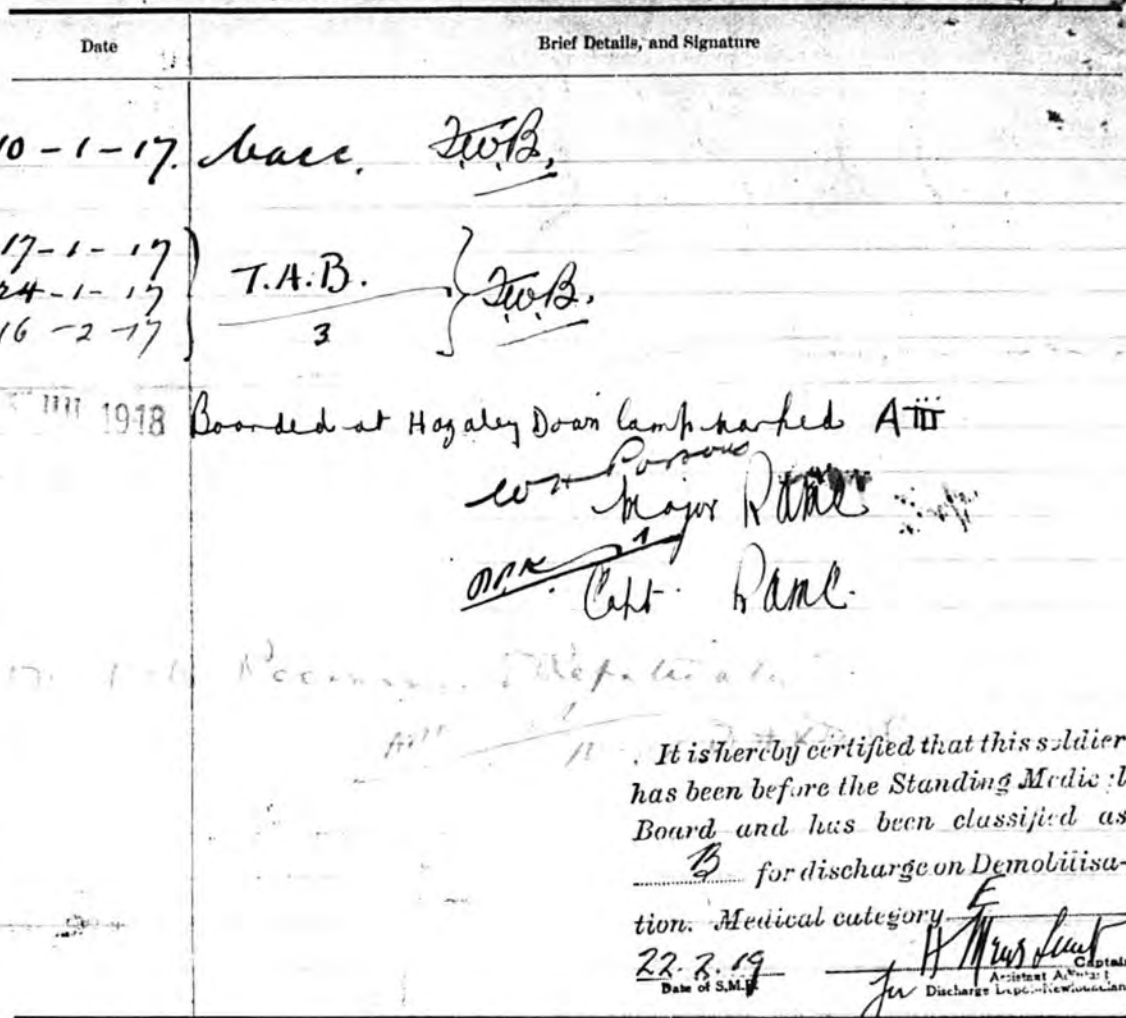 Date Brief Details, and Signature
10-1-17. Vacc. F.W.B.
17-1-17
24-1-17 T.A.B. F.W.B.
16-2-17 3
1918 Boarded at Hazaley Down Camp marked A iii
W H Parsons
Major RAMC
Capt. RAMC.
It is hereby certified that this soldier
has been before the Standing Medical
Board and has been classified as
B for discharge on Demobilisa-
tion. Medical category E
22.2.19 H
Captain
Date of S.M.B. for Assistant Adjutant
Discharge Depot-Newfoundland